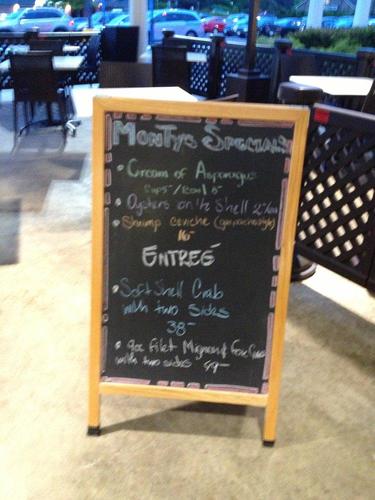 Monty's Specials
• Cream of Asparagus
Cup 5-/Bowl 8-
• Oysters on ½ Shell 2-/ea
• Shrimp ceviche (gazpacho style)
16-
ENTREÉ
• Soft Shell Crab
with two sides
38-
• 9oz Filet Mignon &
with two sides 49-